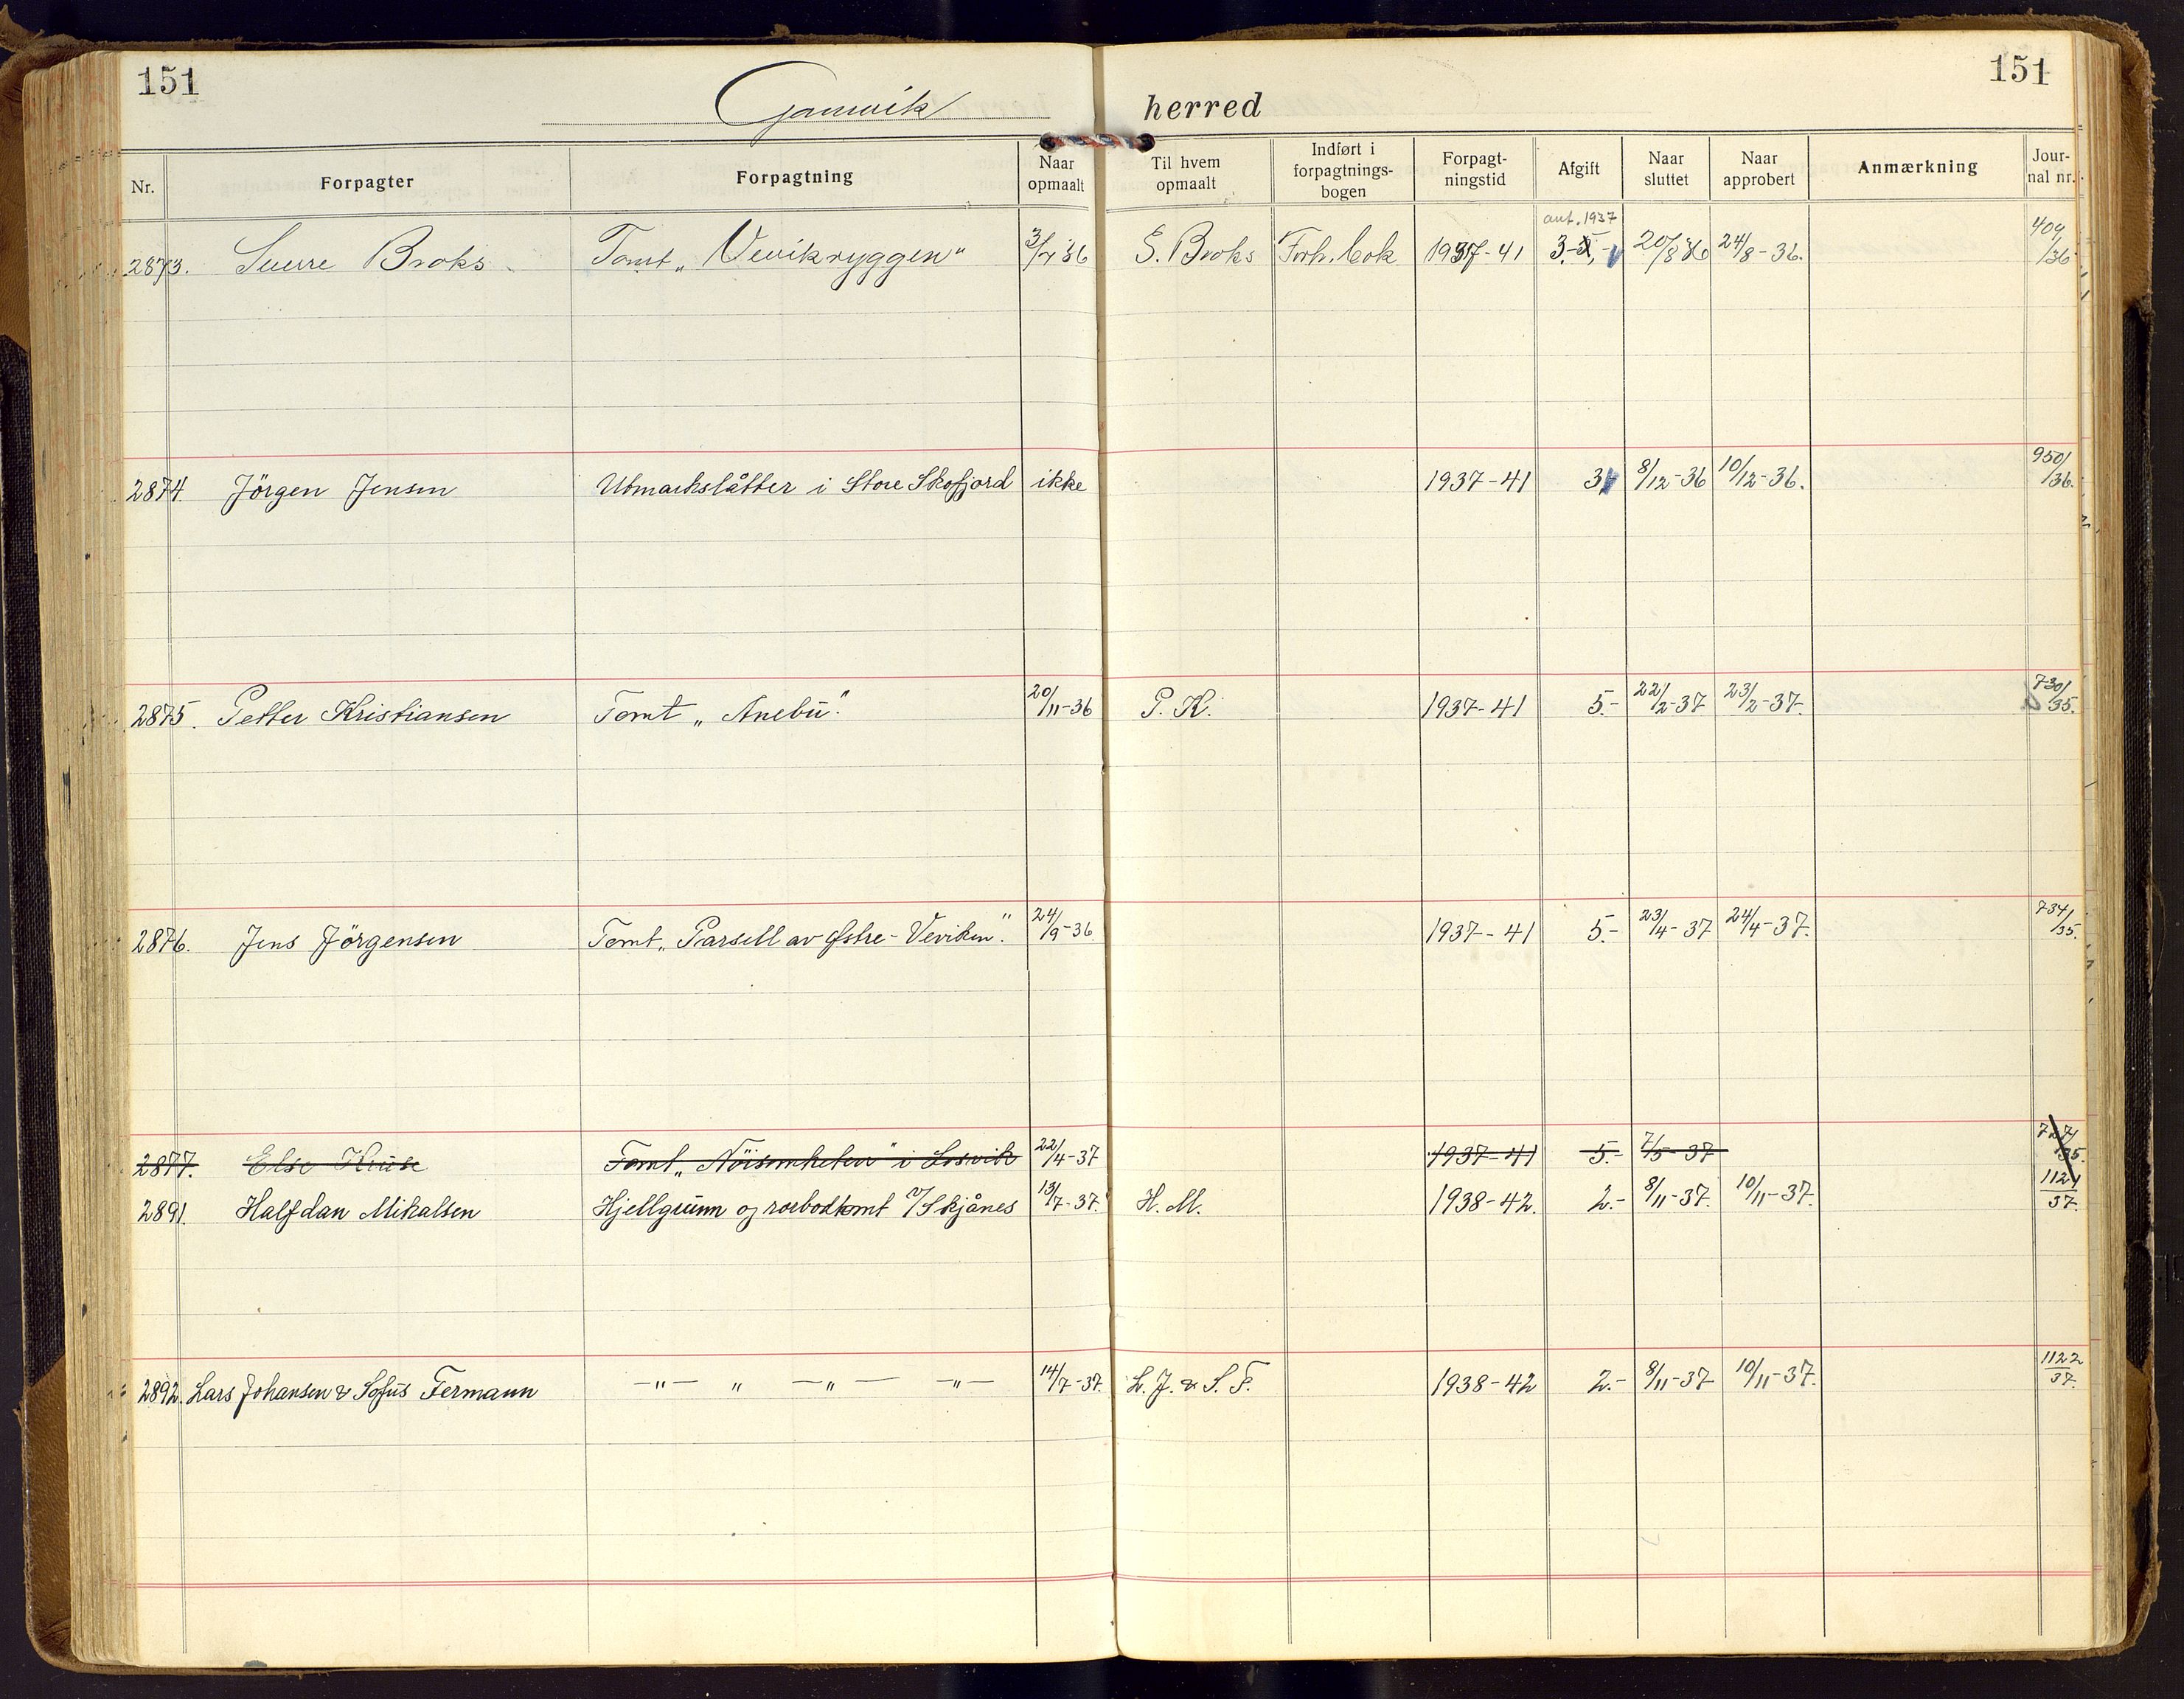 151 151
Gamvik herred
Nr. Forpagter Forpagtning Naar opmaalt Til hvem opmaalt Indført i forpagtnings-bogen Forpagt-ningstid Afgift Naar sluttet Naar approbert Anmærkning Jour-nal nr.
ant. 1937
2873. Sverre Broks Tomt „Vevikryggen" 3/7 36 S. Broks Forh. bok 1937-41 3.- 20/8 36 24/8-36. 409/36
2874. Jörgen Jensen Utmarkslåtter i Store Skofjord ikke 1937-41 3 8/12-36 10/12-36. 950/36.
2875. Petter Kristiansen Tomt „Anebu". 20/11-36 P. K. 1937-41 5.- 22/2-37 23/2-37. 730/35.
2876. Jens Jörgensen Tomt „Parsell av Østre-Veviken". 24/9-36 1937-41 5.- 23/4-37 24/4-37. 734/35.
2877. Else Kruse Tomt „Nöisomheten" i 22/4-37 1937-41 5.- 7/5-37 727/35.
2891. Halfdan Mikalsen Hjellgrunn og roebodtomt v/Skjånes 13/7-37. H. M. 1938-42. 2.- 8/11-37. 10/11-37. 1121/37.
2892. Lars Johansen & Sofus Fermann —"— " —"— —"— 14/7-37. L. J. & S. F. 1938-42 2.- 8/11-37 10/11-37. 1122/37.